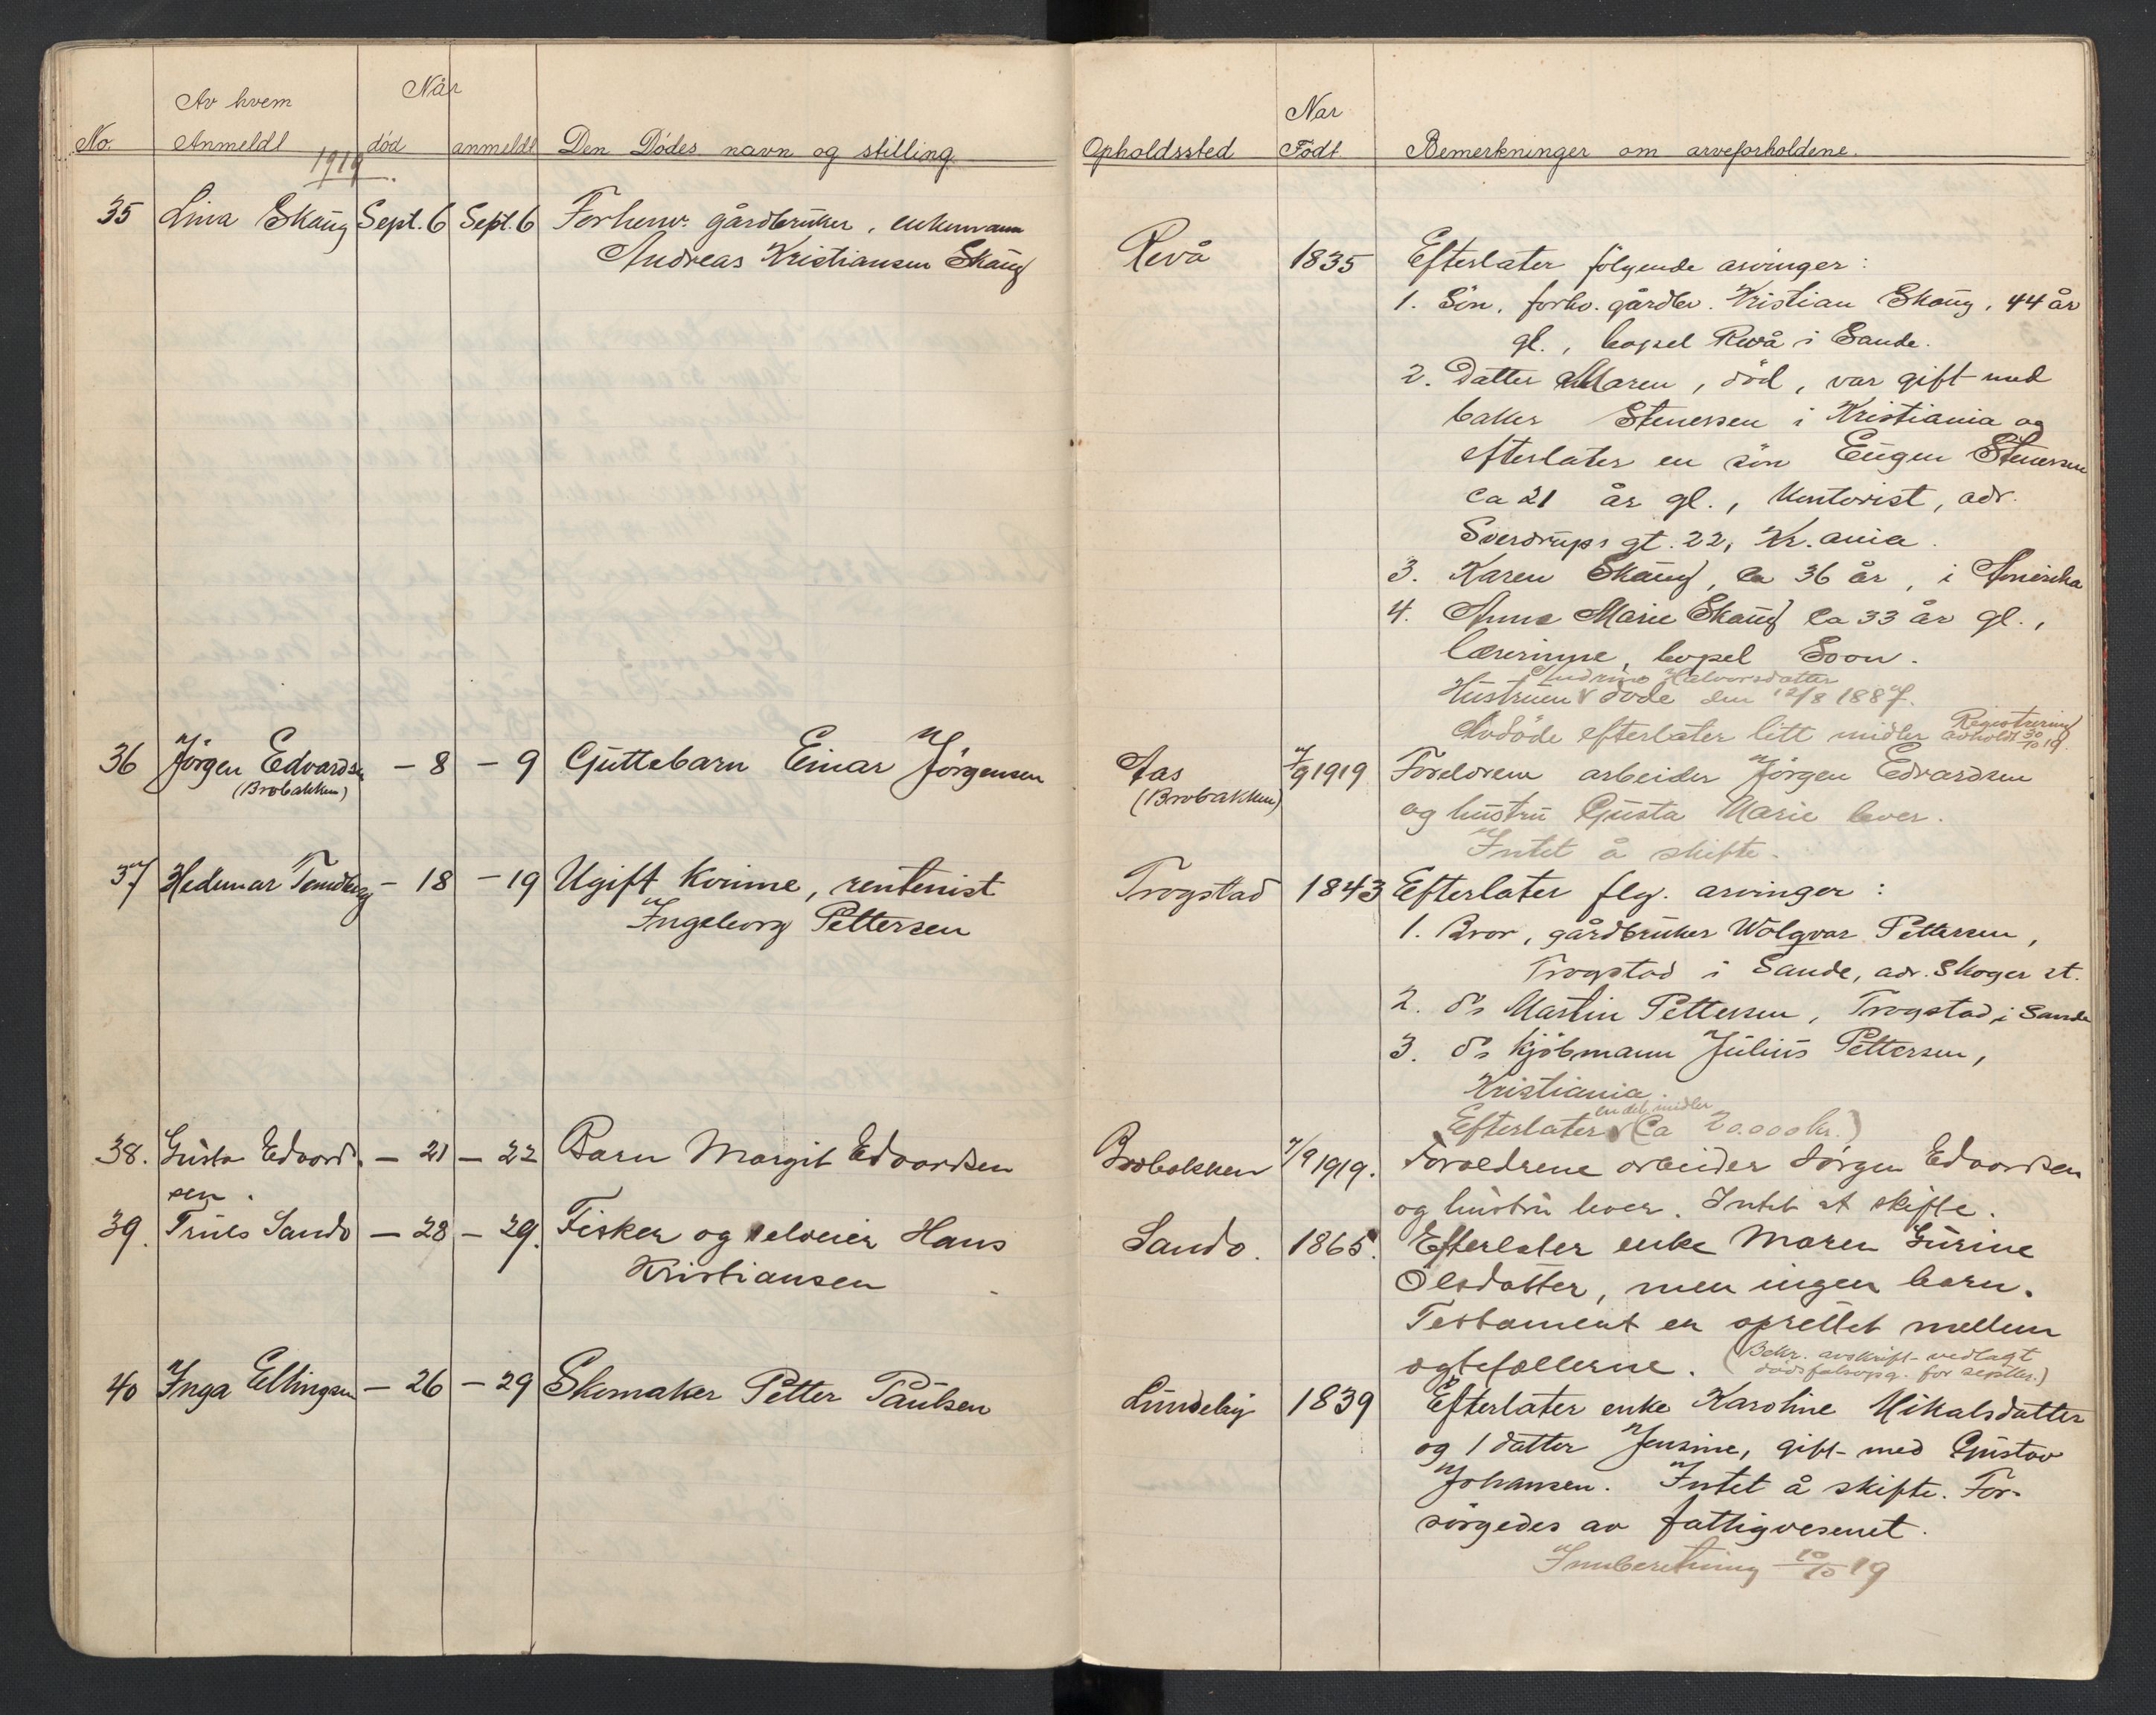 Av hvem
Når
No. Anmeldt død anmeldt Den Dødes navn og stilling.
1919.
35 Lina Skaug Sept. 6 Sept. 6 Forhenv. gårdbruker, enkemann
Andreas Kristiansen Skaug
36 Jörgen Edvardsen - 8 - 9 Guttebarn Einar Jörgensen
(Brobakken)
37 Hedemar - 18 - 19 Ugift kvinne, rentenist
Ingeborg Pettersen
38. Gusta Edvard- - 21 - 22 Barn Margit Edvardsen
sen.
39. Truls Sando - 28 - 29. Fisker og selveier Hans
Kristiansen
40 Inga Ellingsen - 26 - 29 Skomaker Petter Paulsen
Nar
Opholdssted Födt Bemerkninger om arveforholdene.
Revå 1835 Efterlater följende arvinger:
1. Sön, forhv. gårdbr. Kristian Skaug, 44 år
gl., bopel Revå i Sande.
2. Datter Maren, död, var gift med
baker Stenersen i Kristiania og
efterlater en sön Eugen Stenersen
ca 21 år gl., kontorist, adr.
Sverdrups gt. 22, Kr.ania.
3. Karen Skaug, ca 36 år, i Amerika
4. Anna Marie Skaug ca 33 år gl.,
lærerinne, bopel Soon.
Andrine Halvorsdatter
Hustruen v döde den 12/8 1887.
Avdöde efterlater litt midler Registrering
avholdt 30/10 19.
Aas 7/9 1919 Foreldrene arbeider Jörgen Edvardsen
(Brobakken) og hustru Gusta Marie lever.
Intet å skifte.
Trogstad 1843 Efterlater flg. arvinger:
1. Bror, gårdbruker Wolgvar Pettersen,
Trogstad i Sande, adr. Skoger st.
2. ds Martin Pettersen, Trogstad i Sande
3. ds kjöbmann Julius Pettersen,
Kristiania.
en del midler
Efterlater v (Ca 20.000 kr.)
Brobakken 7/9 1919. Foraeldrene arbeider Jörgen Edvardsen
og hustru lever. Intet at skifte.
Sando. 1865. Efterlater enke Maren Gurine
Olsdatter, men ingen barn.
Testament er oprettet mellem
egtefællerne. (Bekr. avskrift vedlagt
dödsfalsopg. for sepktbr.)
Lundeby 1839 Efterlater enke Karoline Mikalsdatter
og 1 datter Jensine, gift med Gustav
Johansen. Intet å skifte. For-
sörgedes av fattigvesenet.
Innberetning 10/10 19